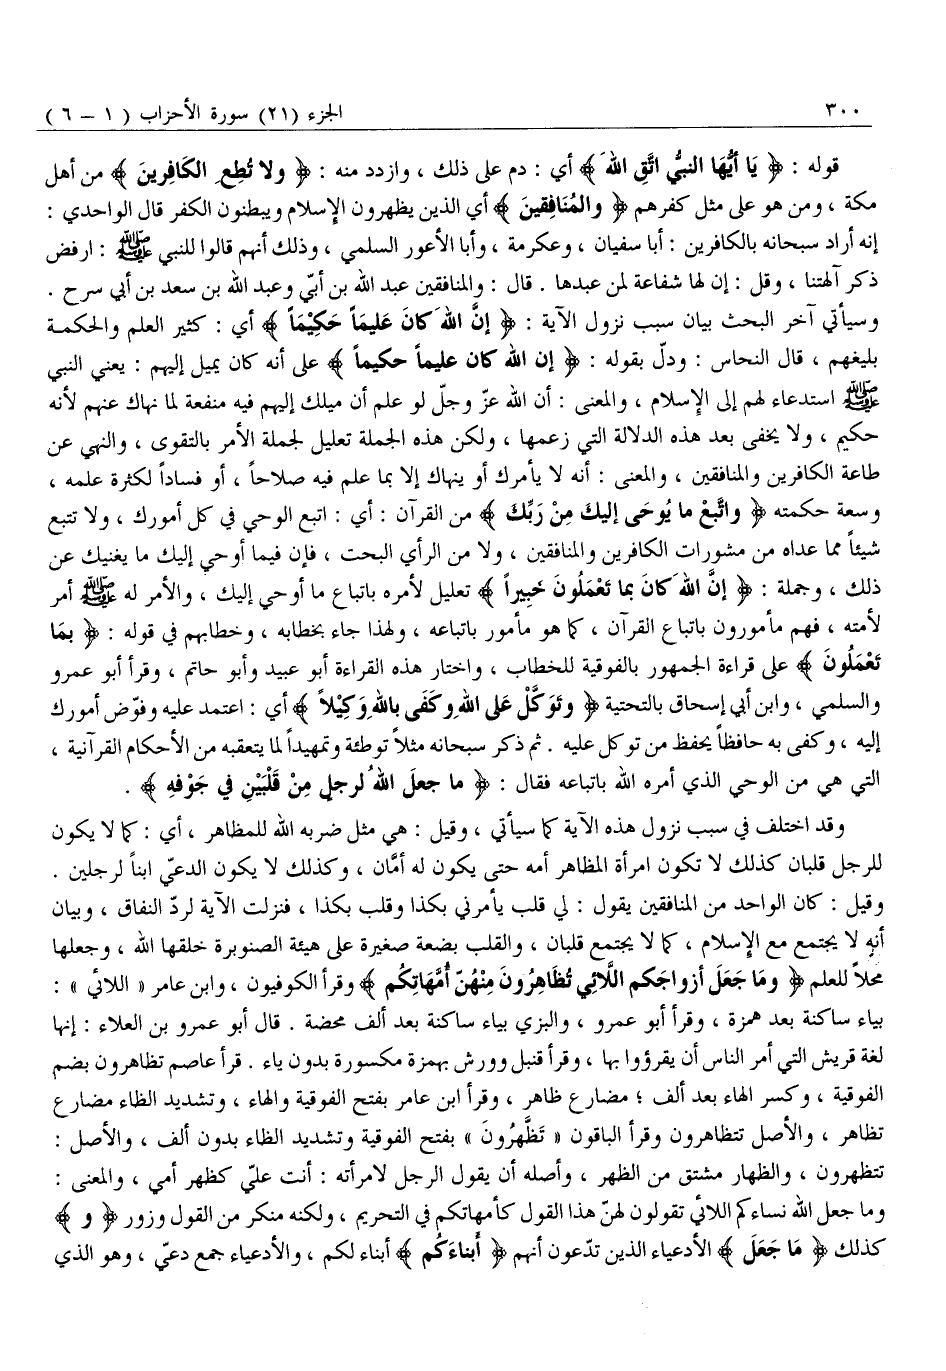 ٣٠٠ الجزء (٢١) سورة الأحزاب ( ١ – ٦ )
قوله : ﴿ يَا أَيُّهَا النبيُّ اتَّقِ اللهَ ﴾ أي : دم على ذلك ، وازدد منه : ﴿ ولا تُطِعِ الكَافِرِينَ ﴾ من أهل
مكة ، ومن هو على مثل كفرهم ﴿ والمُنَافِقِينَ ﴾ أي الذين يظهرون الإسلام ويبطنون الكفر قال الواحدي :
إنه أراد سبحانه بالكافرين : أبا سفيان ، وعكرمة ، وأبا الأعور السلمي ، وذلك أنهم قالوا للنبي ﷺ : ارفض
ذكر آلهتنا ، وقل : إن لها شفاعة لمن عبدها . قال : والمنافقين عبد الله بن أبيّ وعبد الله بن سعد بن أبي سرح .
وسيأتي آخر البحث بيان سبب نزول الآية : ﴿ إنَّ اللهَ كَانَ عَلِيمَاً حَكِيْمَاً ﴾ أي : كثير العلم والحكمة
بليغهم ، قال النحاس : ودلّ بقوله : ﴿ إن الله كان عليماً حكيماً ﴾ على أنه كان يميل إليهم : يعني النبي
ﷺ استدعاء لهم إلى الإسلام ، والمعنى : أن الله عزّ وجلّ لو علم أن ميلك إليهم فيه منفعة لما نهاك عنهم لأنه
حكيم ، ولا يخفى بعد هذه الدلالة التي زعمها ، ولكن هذه الجملة تعليل لجملة الأمر بالتقوى ، والنهي عن
طاعة الكافرين والمنافقين ، والمعنى : أنه لا يأمرك أو ينهاك إلا بما علم فيه صلاحاً ، أو فساداً لكثرة علمه ،
وسعة حكمته ﴿ واتَّبِعْ ما يُوحَى إليكَ مِنْ رَبِّكَ ﴾ من القرآن : أي : اتبع الوحي في كل أمورك ، ولا تتبع
شيئاً مما عداه من مشورات الكافرين والمنافقين ، ولا من الرأي البحت ، فإن فيما أوحي إليك ما يغنيك عن
ذلك ، وجملة : ﴿ إنَّ اللهَ كَانَ بما تَعْمَلُونَ خَبِيراً ﴾ تعليل لأمره باتباع ما أوحي إليك ، والأمر له ﷺ أمر
لأمته ، فهم مأمورون باتباع القرآن ، كما هو مأمور باتباعه ، ولهذا جاء بخطابه ، وخطابهم في قوله : ﴿ بمَا
تَعْمَلُونَ ﴾ على قراءة الجمهور بالفوقية للخطاب ، واختار هذه القراءة أبو عبيد وأبو حاتم ، وقرأ أبو عمرو
والسلمي ، وابن أبي إسحاق بالتحتية ﴿ وتَوَكَّلْ عَلى اللهِ وكَفَى باللهِ وَكِيْلاً ﴾ أي : اعتمد عليه وفوّض أمورك
إليه ، وكفى به حافظاً يحفظ من توكل عليه . ثم ذكر سبحانه مثلاً توطئة وتمهيداً لما يتعقبه من الأحكام القرآنية ،
التي هي من الوحي الذي أمره الله باتباعه فقال : ﴿ ما جعلَ اللهُ لرجلٍ مِنْ قَلْبَيْنِ في جَوْفهِ ﴾ .
وقد اختلف في سبب نزول هذه الآية كما سيأتي ، وقيل : هي مثل ضربه الله للمظاهر ، أي : كما لا يكون
للرجل قلبان كذلك لا تكون امرأة المظاهر أمه حتى يكون له أمَّان ، وكذلك لا يكون الدعيّ ابناً لرجلين .
وقيل : كان الواحد من المنافقين يقول : لي قلب يأمرني بكذا وقلب بكذا ، فنزلت الآية لردّ النفاق ، وبيان
أنه لا يجتمع مع الإسلام ، كما لا يجتمع قلبان ، والقلب بضعة صغيرة على هيئة الصنوبرة خلقها الله ، وجعلها
محلاً للعلم ﴿ ومَا جَعَلَ أزواجَكم اللَّائِي تُظَاهِرُونَ مِنْهُنّ أُمَّهَاتِكُم ﴾ وقرأ الكوفيون ، وابن عامر « اللائي » :
بياء ساكنة بعد همزة ، وقرأ أبو عمرو ، والبزي بياء ساكنة بعد ألف محضة . قال أبو عمرو بن العلاء : إنها
لغة قريش التي أمر الناس أن يقرؤوا بها ، وقرأ قنبل وورش بهمزة مكسورة بدون ياء . قرأ عاصم تظاهرون بضم
الفوقية ، وكسر الهاء بعد ألف ؛ مضارع ظاهر ، وقرأ ابن عامر بفتح الفوقية والهاء ، وتشديد الظاء مضارع
تظاهر ، والأصل تتظاهرون وقرأ الباقون « تَظَّهَّرُونَ » بفتح الفوقية وتشديد الظاء بدون ألف ، والأصل :
تتظهرون ، والظهار مشتق من الظهر ، وأصله أن يقول الرجل لامرأته : أنت عليّ كظهر أمي ، والمعنى :
وما جعل الله نساءكم اللائي تقولون لهنّ هذا القول كأمهاتكم في التحريم ، ولكنه منكر من القول وزور ﴿ و ﴾
كذلك ﴿ مَا جَعَلَ ﴾ الأدعياء الذين تدّعون أنهم ﴿ أَبناءَكُم ﴾ أبناء لكم ، والأدعياء جمع دعيّ ، وهو الذي